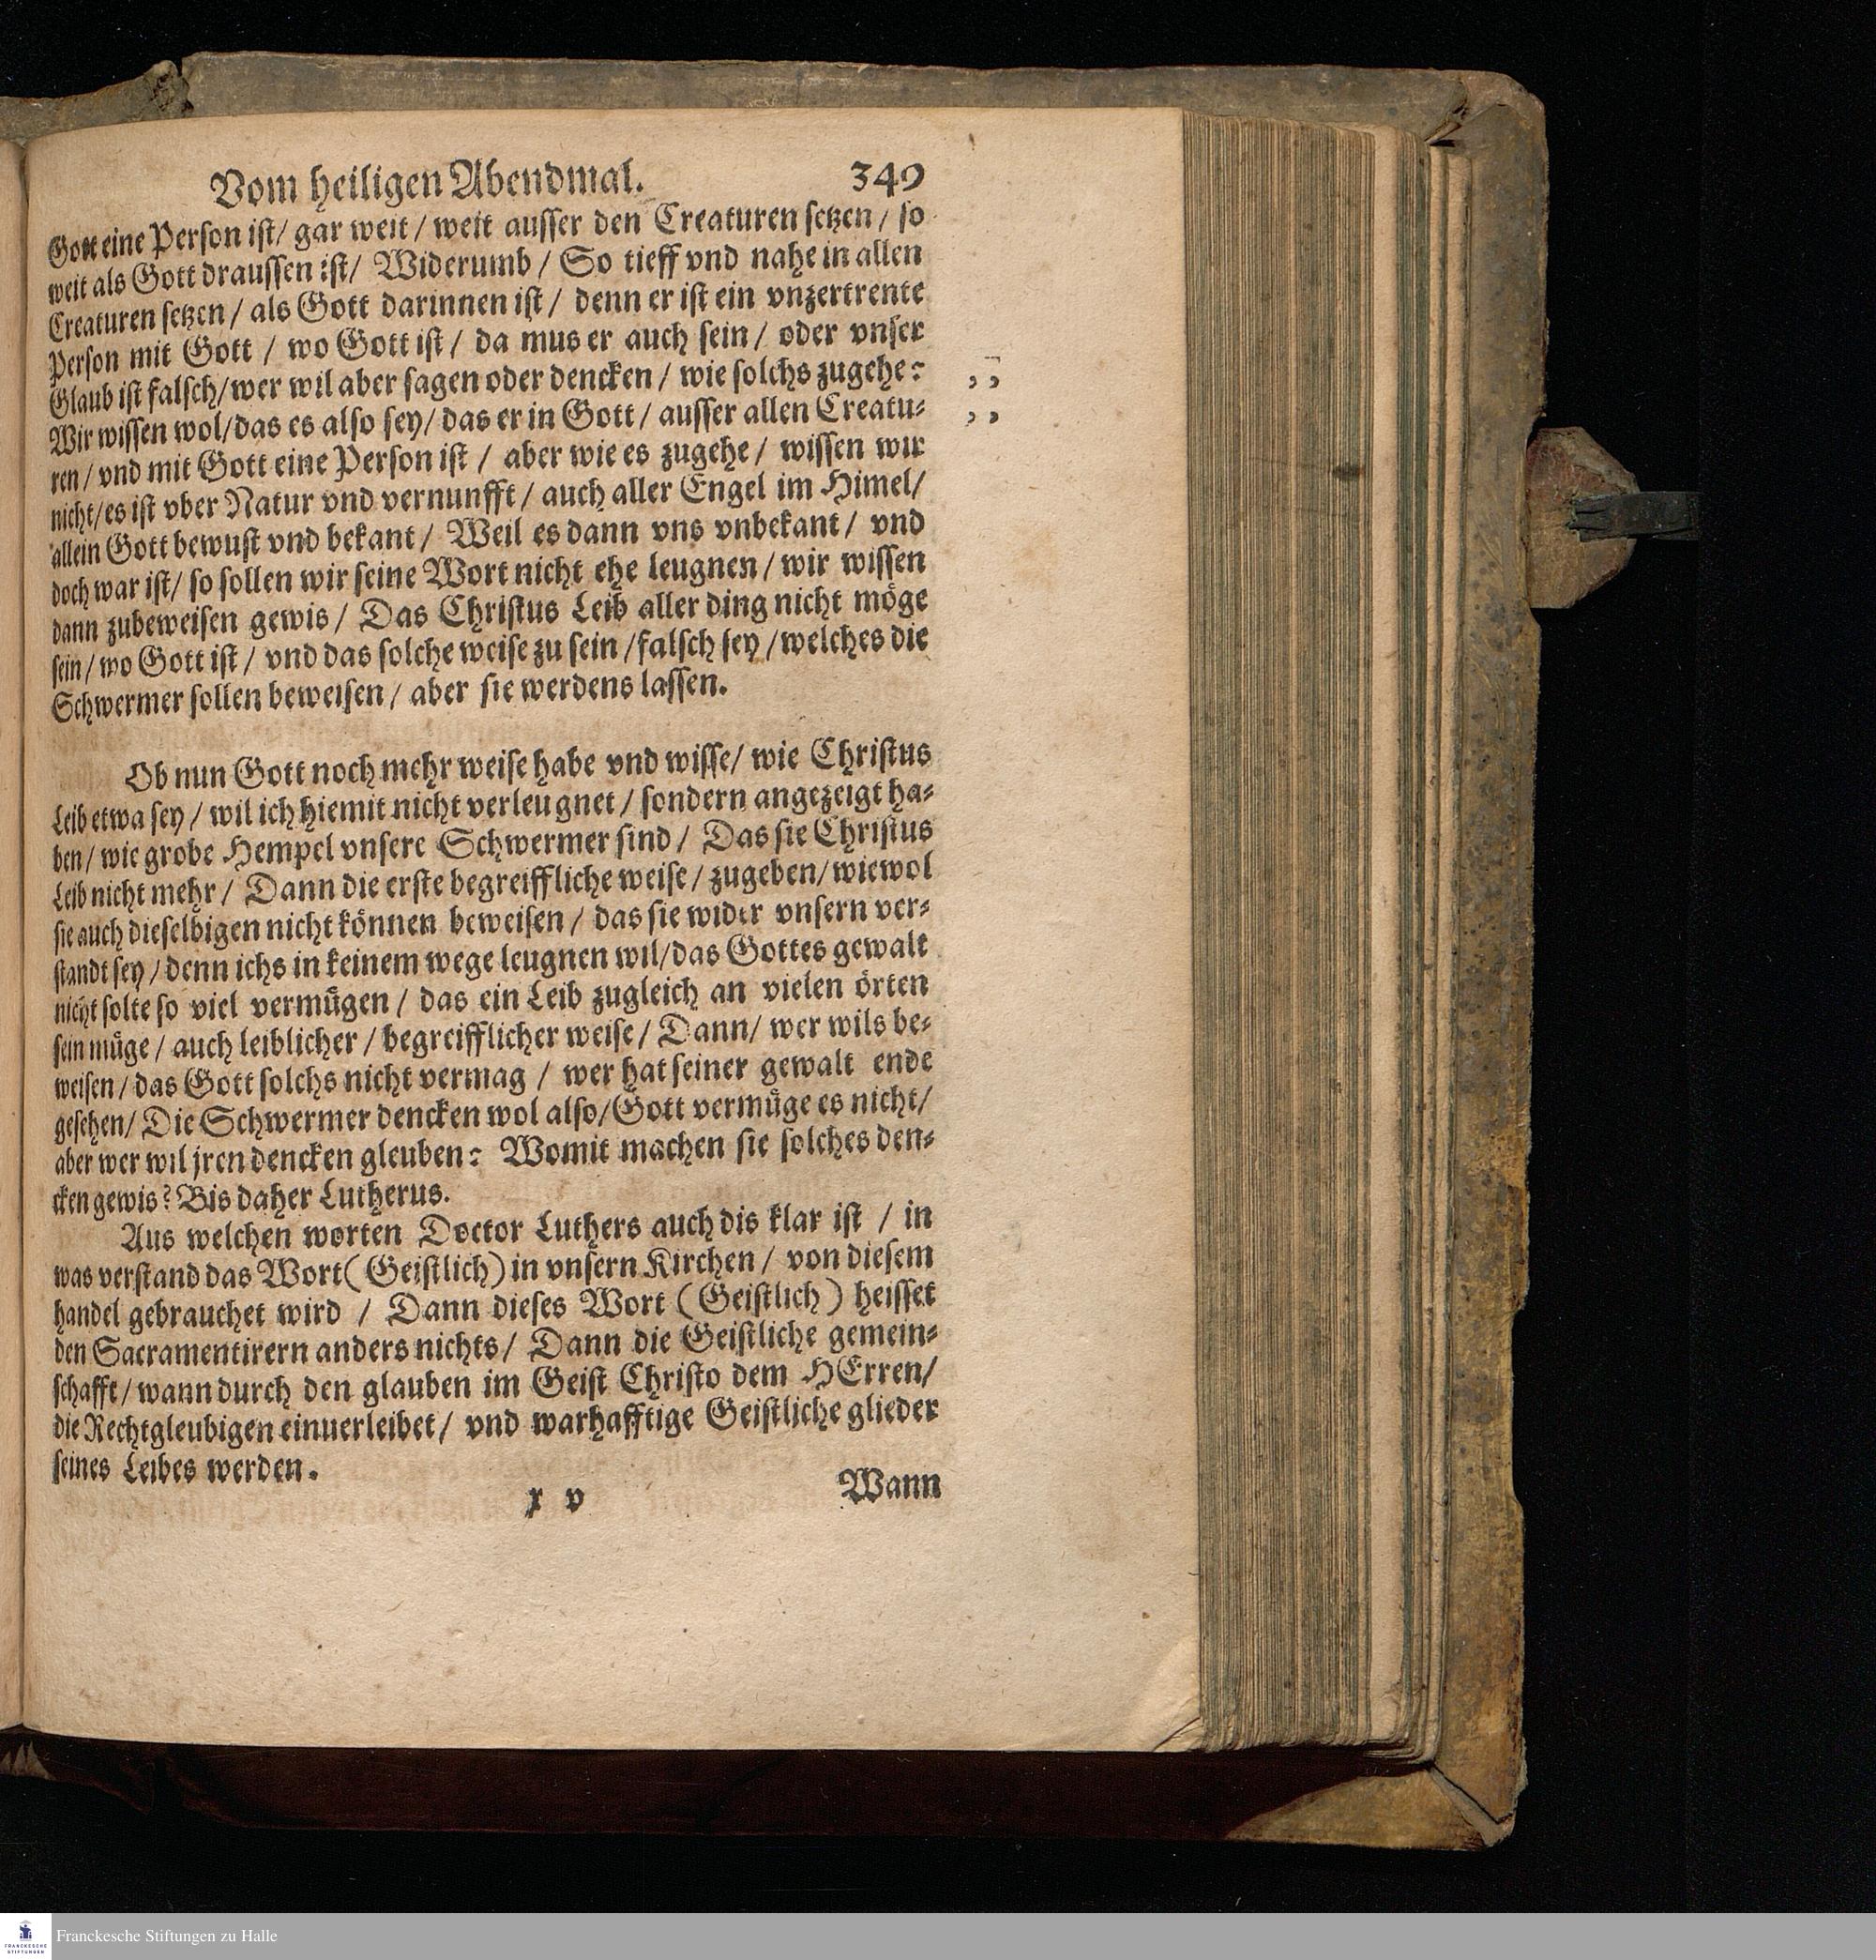 Vom heiligen Abendmal. 349
Gott eine Person ist/ gar weit / weit ausser den Creaturen setzen / so
weit als Gott draussen ist/ Widerumb / So tieff vnd nahe in allen
Creaturen setzen / als Gott darinnen ist / denn er ist ein vnzertrente
Person mit Gott / wo Gott ist / da mus er auch sein / oder vnser
Glaub ist falsch/wer wil aber sagen oder dencken / wie solchs zugehe? ,,
Wir wissen wol/das es also sey/ das er in Gott / ausser allen Creatu- ,,
ren / vnd mit Gott eine Person ist / aber wie es zugehe / wissen wir
nicht/es ist vber Natur vnd vernunfft / auch aller Engel im Himel/
allein Gott bewust vnd bekant / Weil es dann vns vnbekant / vnd
doch war ist/ so sollen wir seine Wort nicht ehe leugnen / wir wissen
dann zubeweisen gewis / Das Christus Leib aller ding nicht möge
sein / wo Gott ist / vnd das solche weise zu sein /falsch sey /welches die
Schwermer sollen beweisen / aber sie werdens lassen.
Ob nun Gott noch mehr weise habe vnd wisse/ wie Christus
Leib etwa sey / wil ich hiemit nicht verleugnet / sondern angezeigt ha-
ben / wie grobe Hempel vnsere Schwermer sind / Das sie Christus
Leib nicht mehr / Dann die erste begreiffliche weise / zugeben/ wiewol
sie auch dieselbigen nicht können beweisen / das sie wider vnsern ver-
standt sey / denn ichs in keinem wege leugnen wil/das Gottes gewalt
nicht solte so viel vermügen / das ein Leib zugleich an vielen örten
sein müge / auch leiblicher / begreifflicher weise / Dann/ wer wils be-
weisen / das Gott solchs nicht vermag / wer hat seiner gewalt ende
gesehen/ Die Schwermer dencken wol also/Gott vermüge es nicht/
aber wer wil jren dencken gleuben? Womit machen sie solches den-
cken gewis? Bis daher Lutherus.
Aus welchen worten Doctor Luthers auch dis klar ist / in
was verstand das Wort( Geistlich) in vnsern Kirchen / von diesem
handel gebrauchet wird / Dann dieses Wort ( Geistlich ) heisset
den Sacramentirern anders nichts/ Dann die Geistliche gemein-
schafft / wann durch den glauben im Geist Christo dem HErren/
die Rechtgleubigen einuerleibet/ vnd warhafftige Geistliche glieder
seines Leibes werden.
x v Wann
FRANCKESCHE
STIFTUNGEN
Franckesche Stiftungen zu Halle